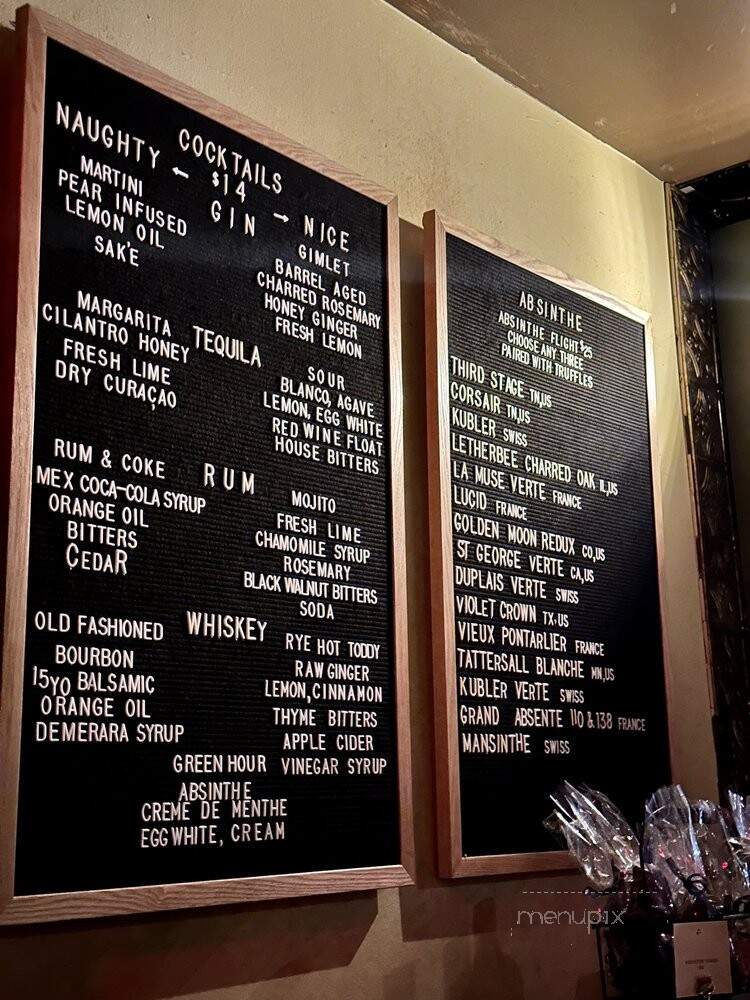 COCKTAILS
NAUGHTY ← $14 → NICE
GIN
MARTINI
PEAR INFUSED
LEMON OIL
SAK'E
GIMLET
BARREL AGED
CHARRED ROSEMARY
HONEY GINGER
FRESH LEMON
TEQUILA
MARGARITA
CILANTRO HONEY
FRESH LIME
DRY CURAÇAO
SOUR
BLANCO, AGAVE
LEMON, EGG WHITE
RED WINE FLOAT
HOUSE BITTERS
RUM
RUM & COKE
MEX COCA-COLA SYRUP
ORANGE OIL
BITTERS
CEDAR
MOJITO
FRESH LIME
CHAMOMILE SYRUP
ROSEMARY
BLACK WALNUT BITTERS
SODA
WHISKEY
OLD FASHIONED
BOURBON
15YO BALSAMIC
ORANGE OIL
DEMERARA SYRUP
RYE HOT TODDY
RAW GINGER
LEMON, CINNAMON
THYME BITTERS
APPLE CIDER
VINEGAR SYRUP
GREEN HOUR
ABSINTHE
CREME DE MENTHE
EGG WHITE, CREAM
ABSINTHE
ABSINTHE FLIGHT $25
CHOOSE ANY THREE
PAIRED WITH TRUFFLES
THIRD STAGE TN,US
CORSAIR TN,US
KUBLER SWISS
LETHERBEE CHARRED OAK IL,US
LA MUSE VERTE FRANCE
LUCID FRANCE
GOLDEN MOON REDUX CO,US
ST GEORGE VERTE CA,US
DUPLAIS VERTE SWISS
VIOLET CROWN TX,US
VIEUX PONTARLIER FRANCE
TATTERSALL BLANCHE MN,US
KUBLER VERTE SWISS
GRAND ABSENTE 110 & 138 FRANCE
MANSINTHE SWISS
menupix